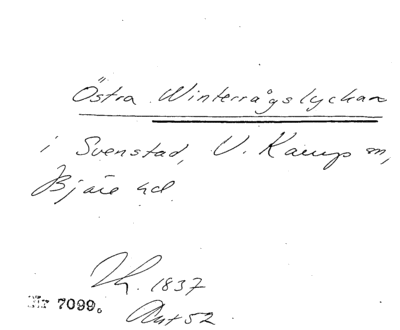 Östra Winterrågslyckan
i Svenstad, V. Karup sn,
Bjäre hd
Lh. 1837
Nr 7099. Akt 52